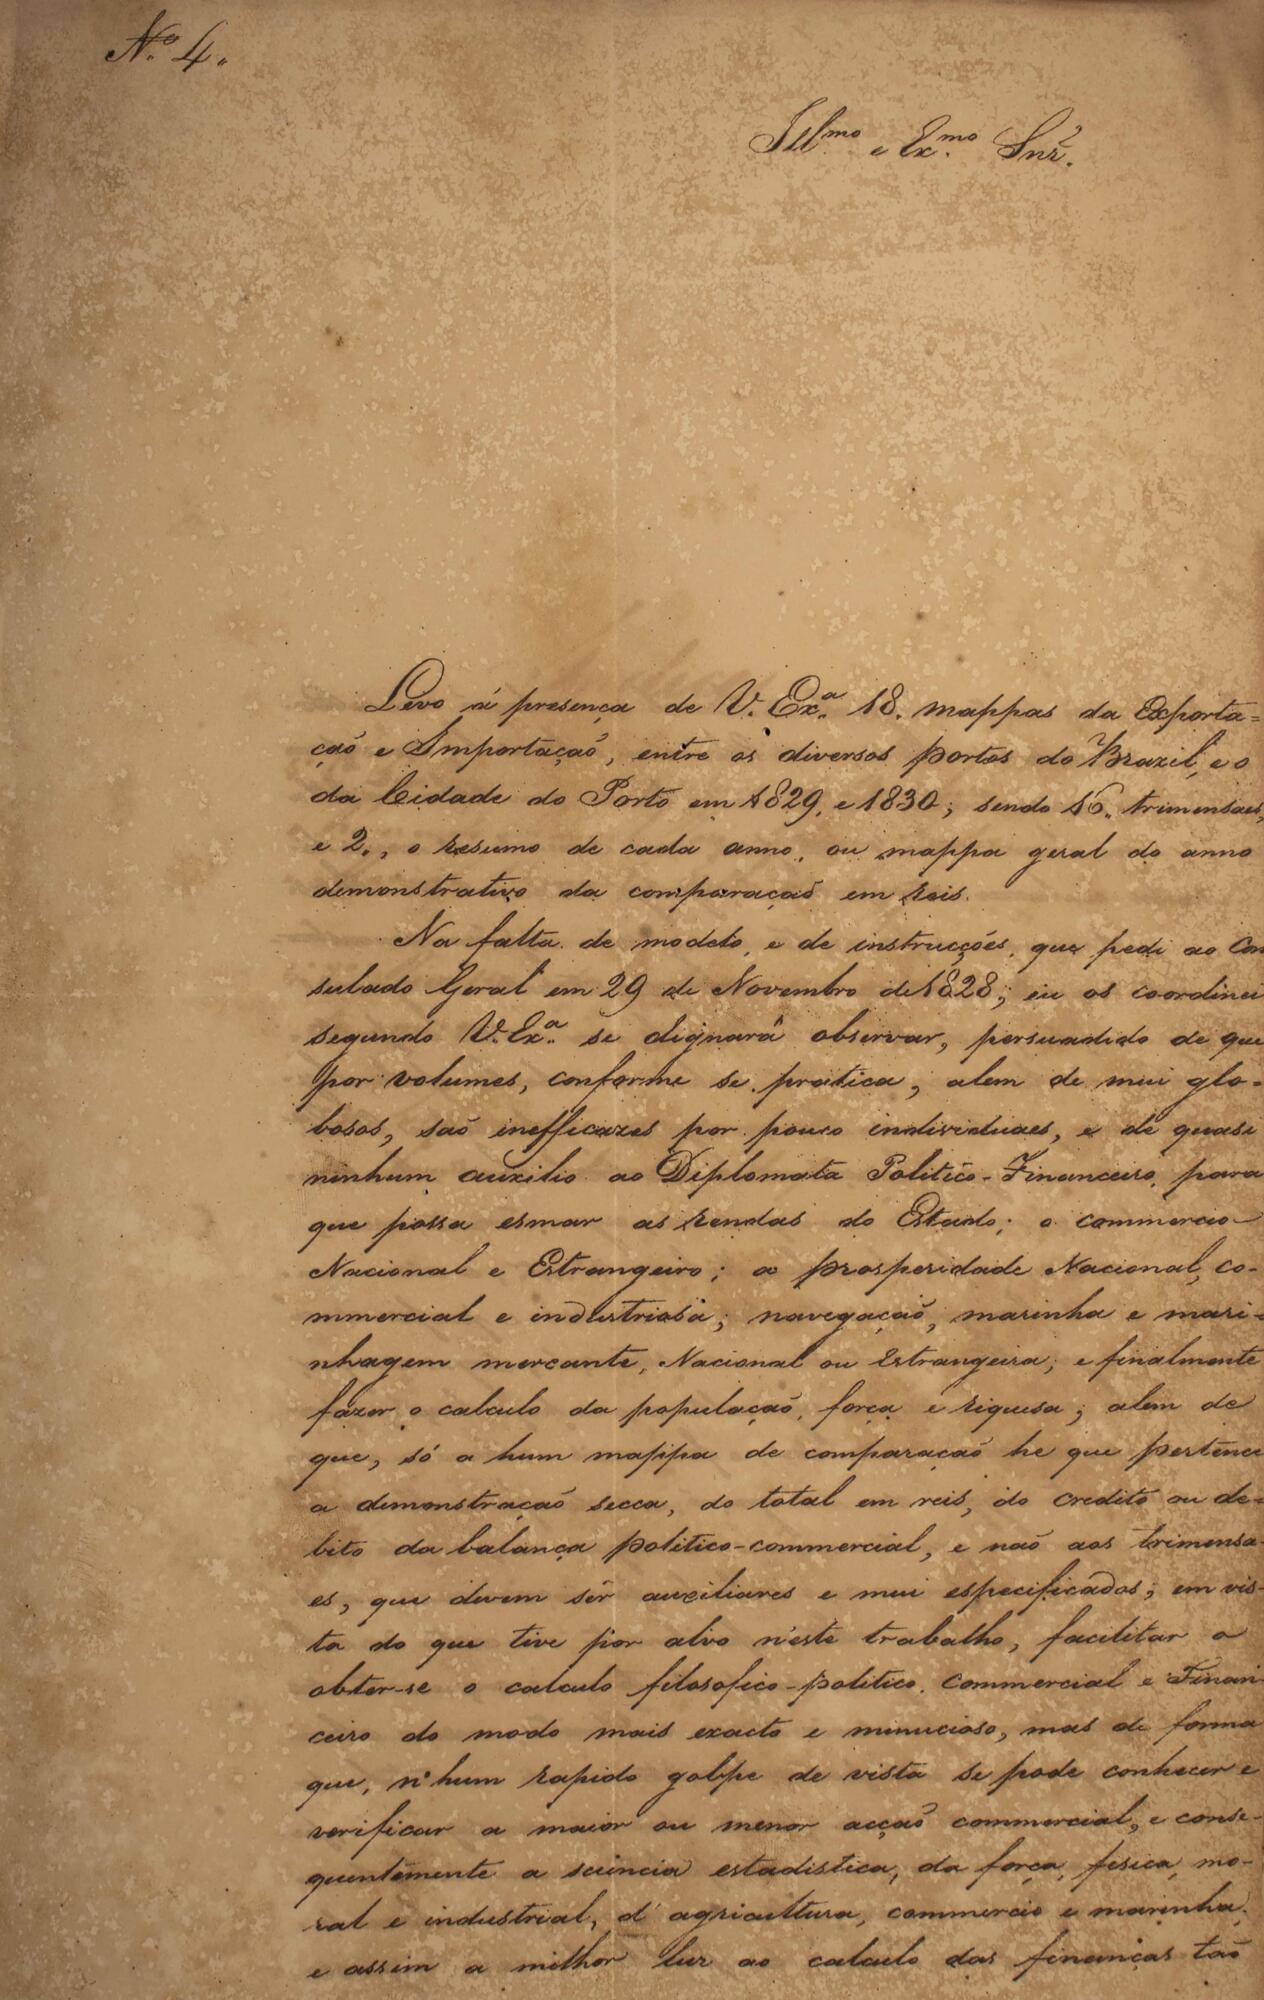 Nº 4.
Illmo e Exmo Snr.
Levo á presença de V. Exª 18. mappas da Exporta=
çaõ e Importaçaõ, entre os diversos portos do Brazil, e o
da Cidade do Porto em 1829, e 1830; sendo 16. trimensaes,
e 2., o resumo de cada anno, ou mappa geral do anno
demonstrativo da comparaçaõ em reis.
Na falta de modelo, e de instrucções, que pedi ao Con
sulado Geral em 29 de Novembro de 1828; eu os coordinei
segundo V. Exª se dignará observar, persuadido de que
por volumes, conforme se pratica, alem de mui glo-
bosos, saõ inefficazes por pouco individuaes, e de quasi
ninhum auxilio ao Diplomata Politico-Financeiro, para
que possa esmar as rendas do Estado; o commercio
Nacional e Estrangeiro; a prosperidade Nacional, co-
mmercial e industriosa; navegaçaõ, marinha e mari-
nhagem mercante, Nacional ou Estrangeira; e finalmente
fazer o calculo da populaçaõ, força e riquesa; alem de
que, só a hum mappa de comparaçaõ he que pertence
a demonstraçaõ secca, do total em reis, do credito ou de-
bito da balança politico-commercial, e naõ aos trimensa-
es, que devem sêr auxiliares e mui especificados; em vis-
ta do que tive por alvo n'este trabalho, facilitar o
obter-se o calculo filosofico-politico, Commercial e Finan
ceiro do modo mais exacto e minucioso, mas de forma
que, n'hum rapido golpe de vista se pode conhecer e
verificar a maior ou menor acçaõ commercial, e conse-
quentemente a sciencia estadistica, da força, fisica, mo-
ral e industrial, d'agricultura, commercio e marinha,
e assim a milhor luz ao calculo das finanças taõ